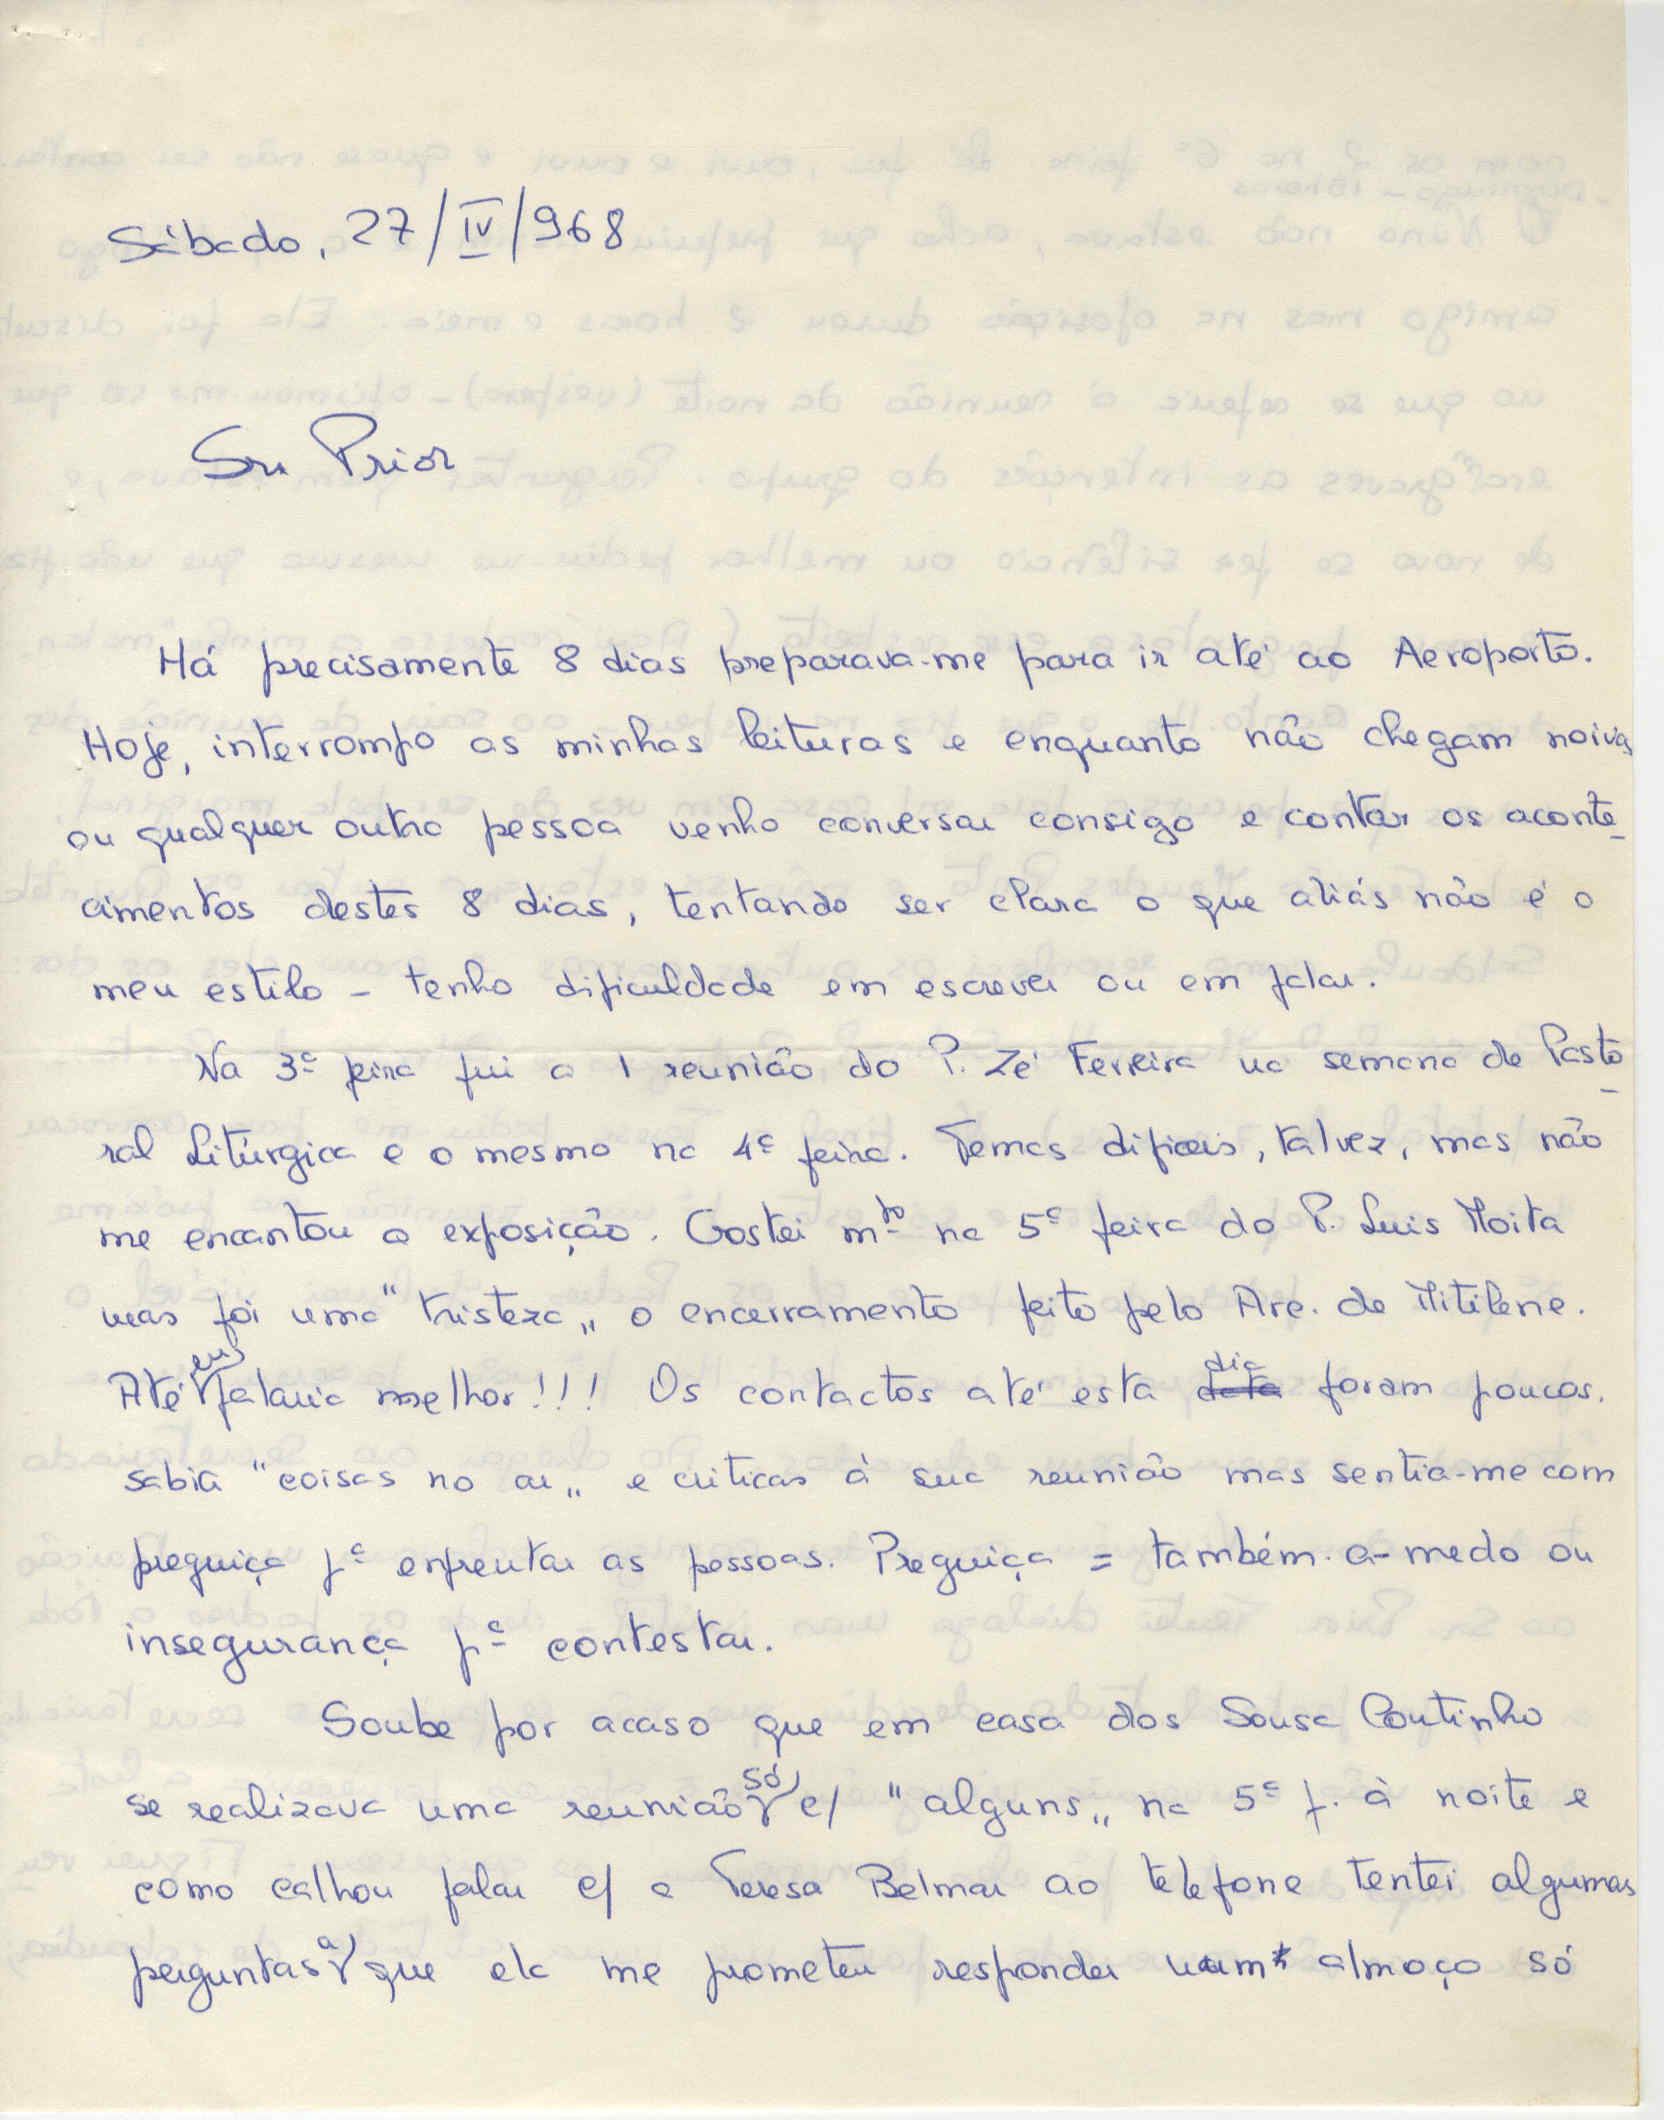 Sábado, 27/IV/968
Snr Prior
Há precisamente 8 dias preparava-me para ir até ao Aeroporto.
Hoje, interrompo as minhas leituras e enquanto não chegam noivas
ou qualquer outra pessoa venho conversar consigo e contar os aconte_
cimentos destes 8 dias, tentando ser clara o que aliás não é o
meu estilo – tenho dificuldade em escrever ou em falar.
Na 3ª feira fui a 1 reunião do P. Zé Ferreira na semana de Pasto_
ral Litúrgica e o mesmo na 4ª feira. Temas dificeis, talvez, mas não
me encantou a exposição. Gostei mto na 5ª feira do P. Luis Moita
mas foi uma "tristeza„ o encerramento feito pelo Arc. de Mitilene.
Até eu falaria melhor!!! Os contactos até esta data dia foram poucos.
sabia "coisas no ar„ e criticas à sua reunião mas sentia-me com
preguiça pª enfrentar as pessoas. Preguiça = também a medo ou
insegurança pª contestar.
Soube por acaso que em casa dos Sousa Coutinho
se realizava uma reunião só c/ "alguns„ na 5ª f. à noite e
como calhou falar c/ a Teresa Belmar ao telefone tentei algumas
perguntas a que ela me prometeu responder num almoço só